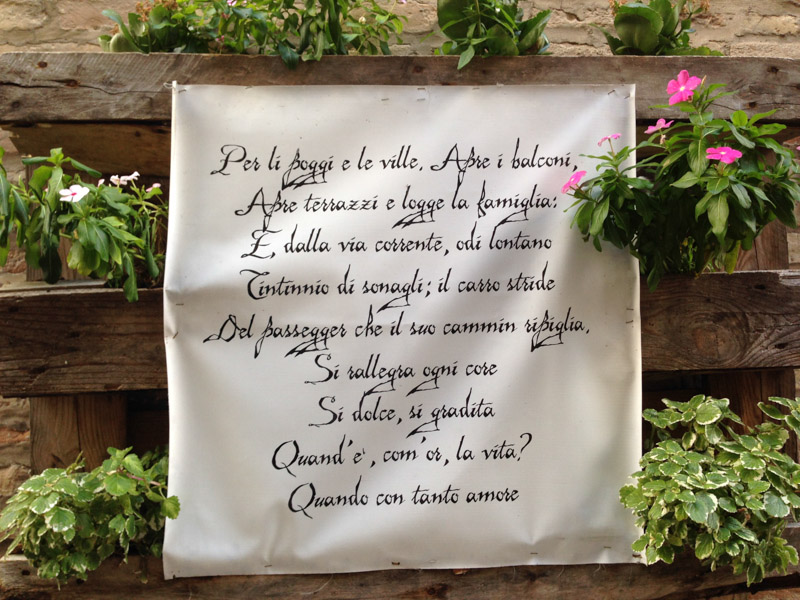 Per li poggi e le ville. Apre i balconi,
Apre terrazzi e logge la famiglia:
E, dalla via corrente, odi lontano
Tintinnio di sonagli; il carro stride
Del passegger che il suo cammin ripiglia.
Si rallegra ogni core
Sì dolce, sì gradita
Quand'e', com'or, la vita?
Quando con tanto amore